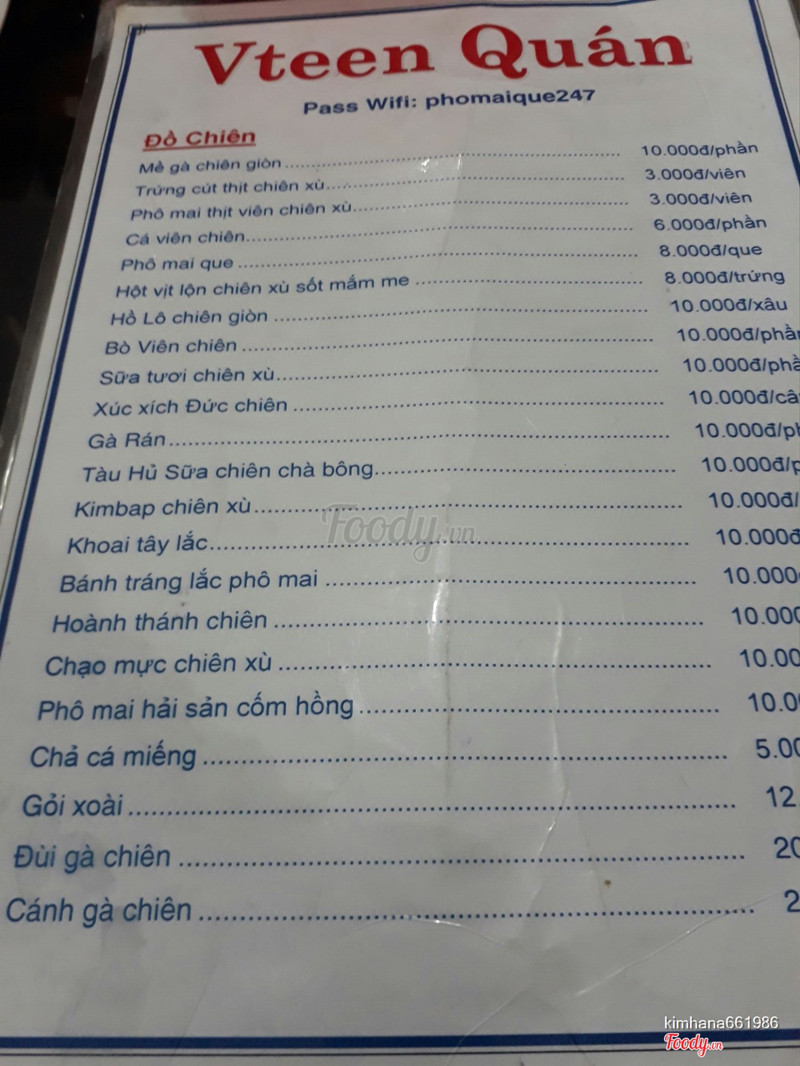 Vteen Quán
Pass Wifi: phomaique247
Đồ Chiên
Mề gà chiên giòn 10.000đ/phần
Trứng cút thịt chiên xù 3.000đ/viên
Phô mai thịt viên chiên xù 3.000đ/viên
Cá viên chiên 6.000đ/phần
Phô mai que 8.000đ/que
Hột vịt lộn chiên xù sốt mắm me 8.000đ/trứng
Hồ Lô chiên giòn 10.000đ/xâu
Bò Viên chiên 10.000đ/phần
Sữa tươi chiên xù 10.000đ/phầ
Xúc xích Đức chiên 10.000đ/câ
Gà Rán 10.000đ/ph
Tàu Hủ Sữa chiên chà bông 10.000đ/p
Kimbap chiên xù 10.000đ/
Khoai tây lắc 10.000đ
Bánh tráng lắc phô mai 10.000
Hoành thánh chiên 10.000
Chạo mực chiên xù 10.00
Phô mai hải sản cốm hồng 10.0
Chả cá miếng 5.00
Gỏi xoài 12.
Đùi gà chiên 20
Cánh gà chiên 2
Foody.vn
kimhana661986
Foody.vn